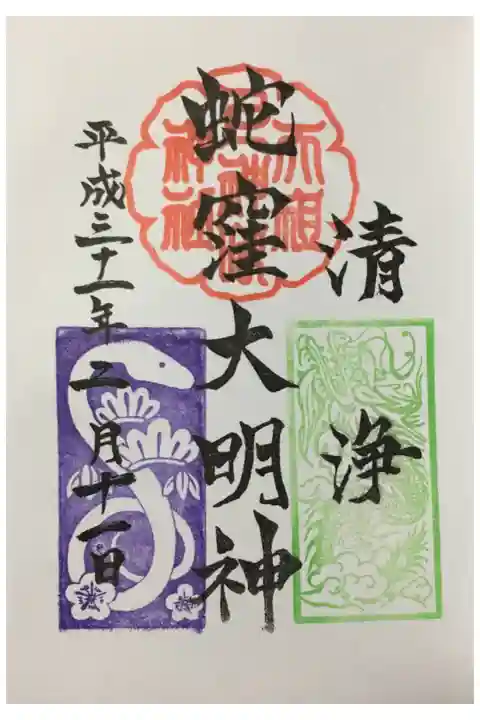 清浄
蛇窪大明神
平成三十一年二月十一日
天祖
神社